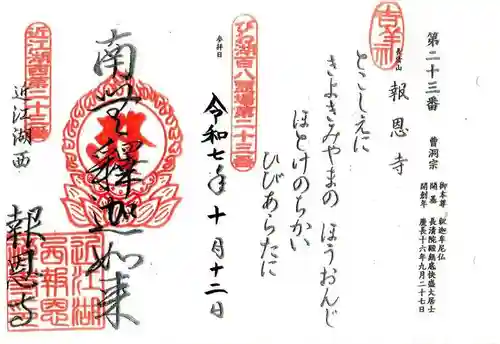 第二十三番
曹洞宗
御本尊 釈迦牟尼仏
開基 長清院殿鉄底快盛大居士
開創年 慶長十六年九月二十七日
吉祥
長清山
報恩寺
とこしえに
きよきみやまの ほうおんじ
ほとけのちかい
ひびあらたに
びわ湖百八霊場第二十三番
参拝日
令和七年 十月十二日
南無釋迦如来
近江湖西第二十三番
近江湖西
報恩寺
近江湖
西報恩